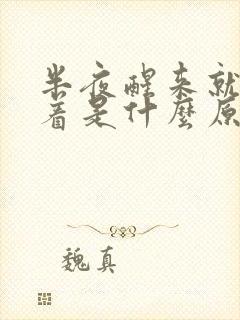 半夜醒来就
着是什麼原
魏真